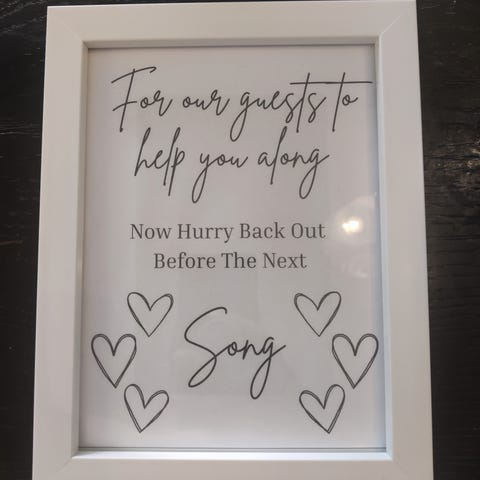 For our guests to
help you along
Now Hurry Back Out
Before The Next
Song